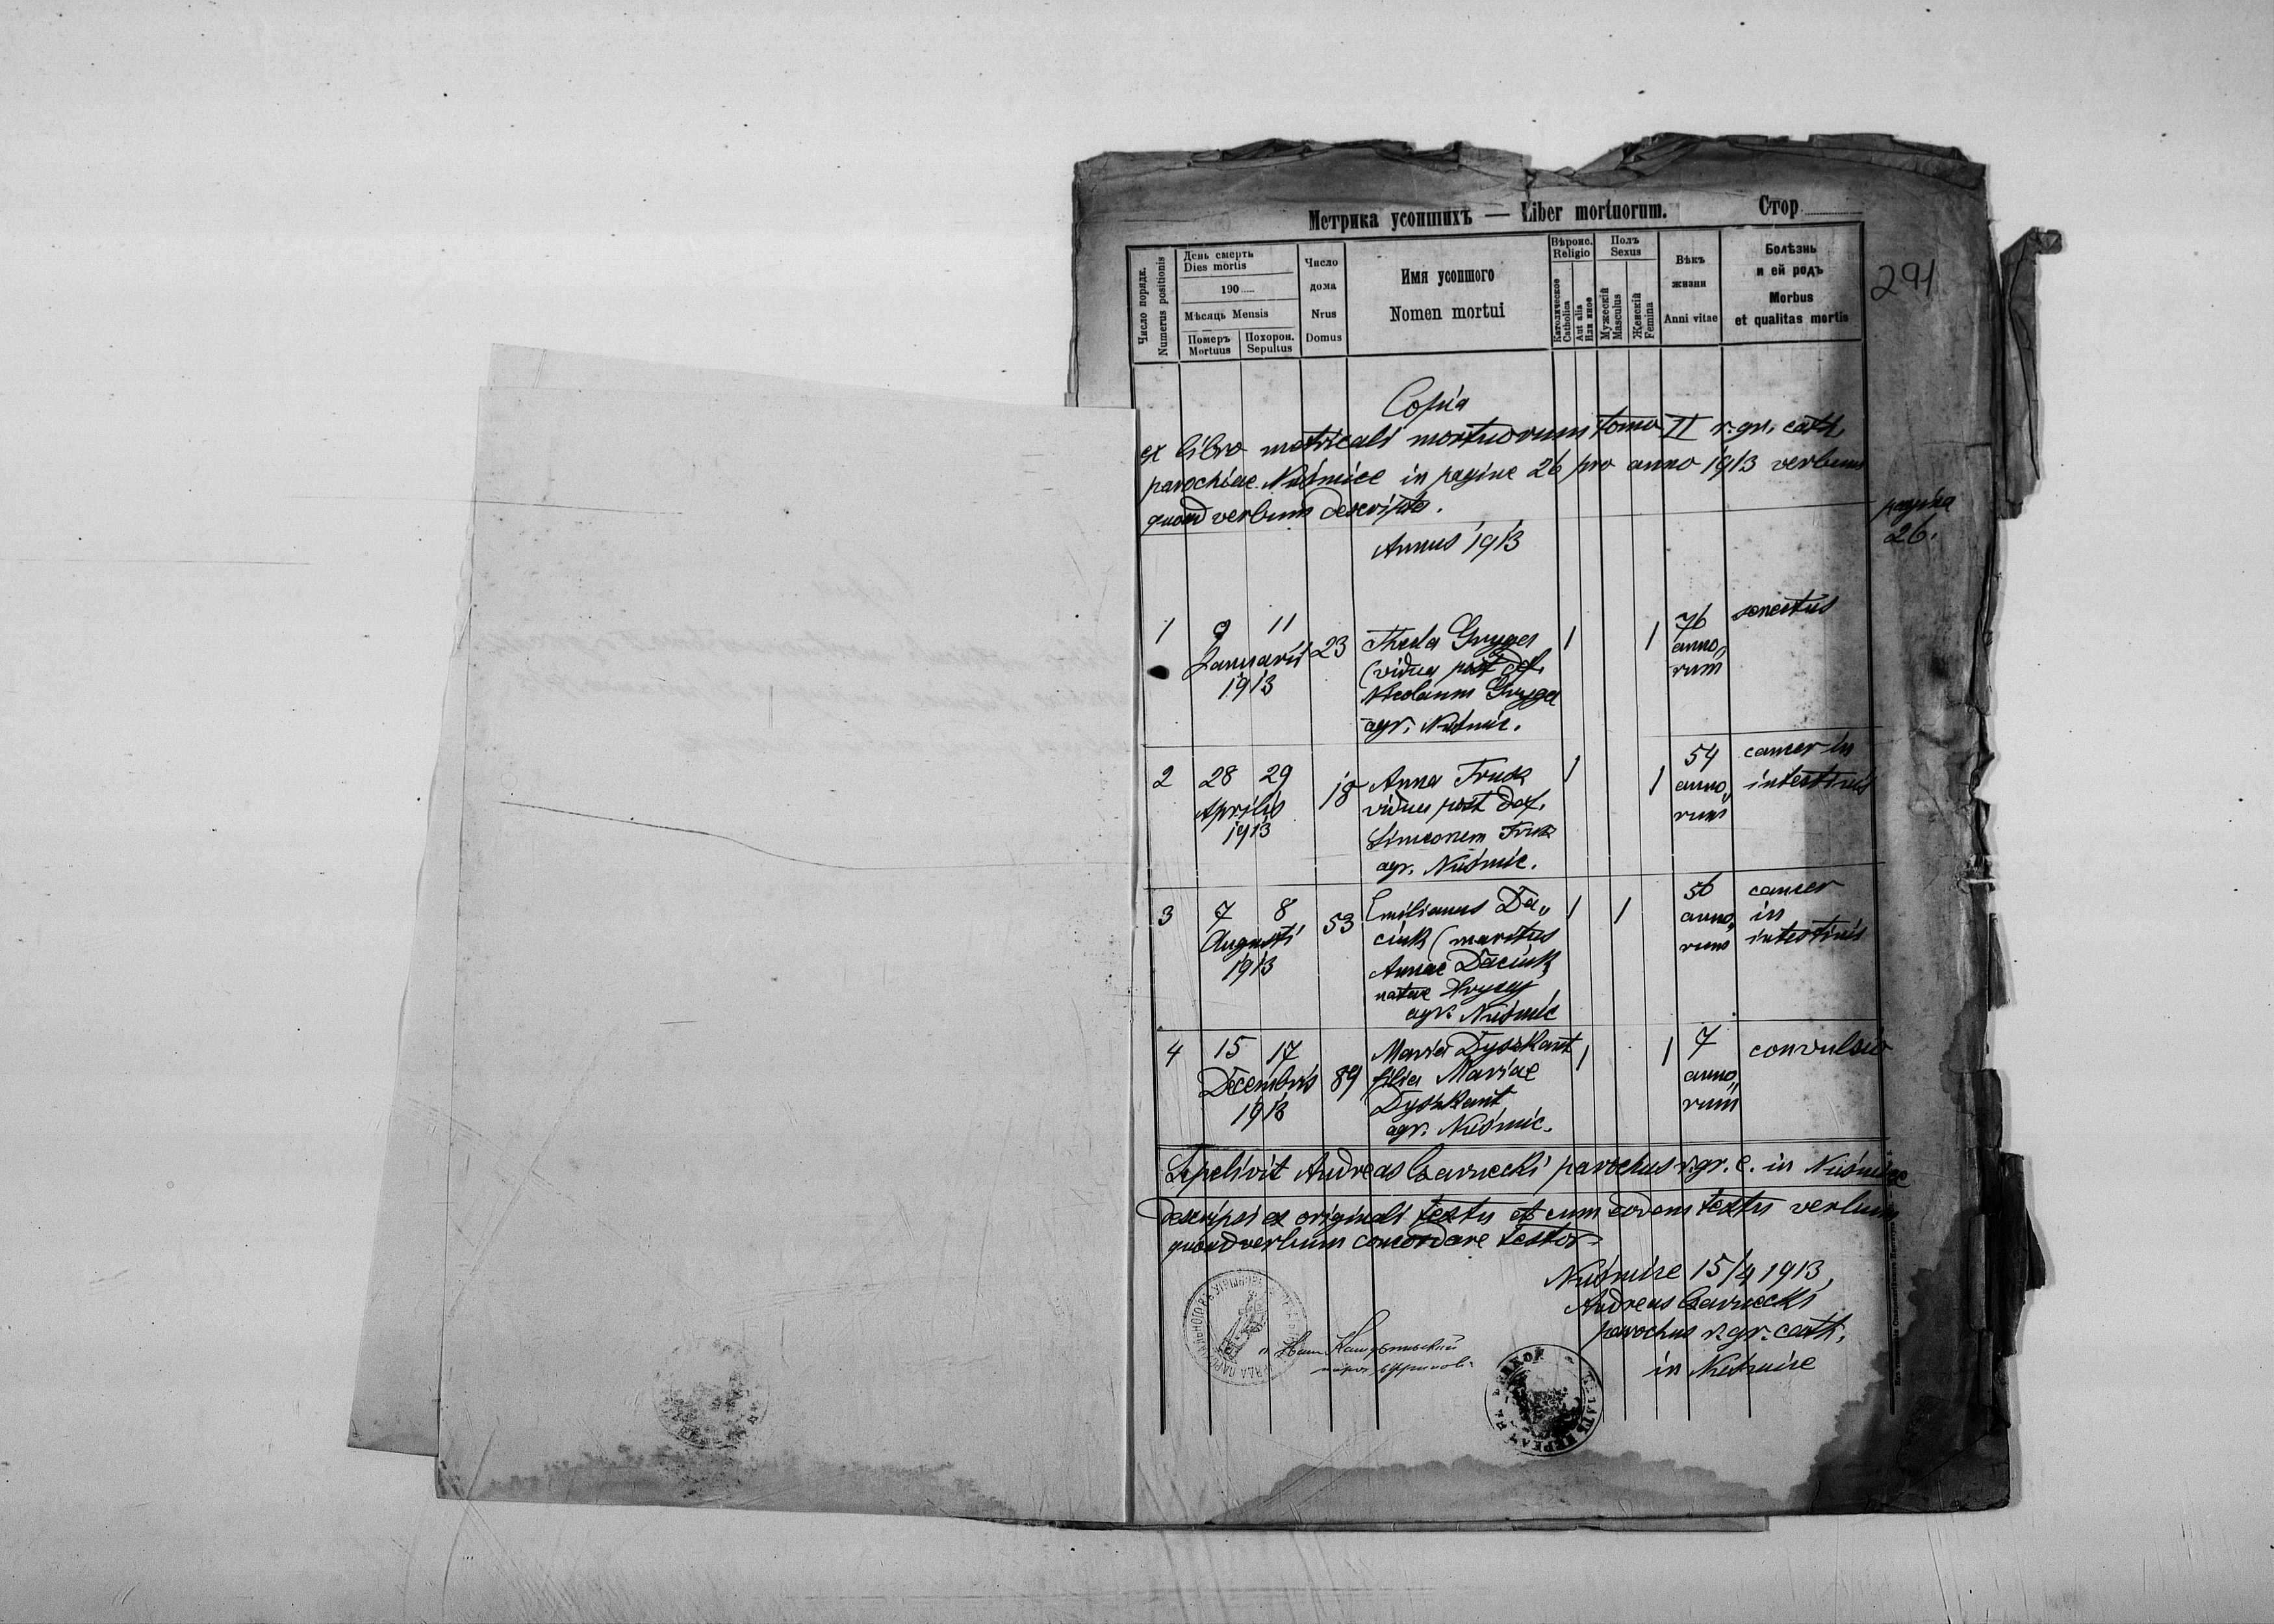 Метрика усопшихъ — Liber mortuorum. Стор.
291
Число порядк.
Numerus positionis
День смерть
Dies mortis
190
Мѣсяць Mensis
Померъ
Mortuus
Похорон.
Sepultus
Число
дома
Nrus
Domus
Имя усопшого
Nomen mortui
Вѣроис.
Religio
Католическое
Catholica
Aut alia
Или иное
Полъ
Sexus
Мужескій
Masculus
Женскій
Femina
Вѣкъ
жизни
Anni vitae
Болѣзнь
и ей родъ
Morbus
et qualitas mortis
Copia
ex libro metricali mortuorum tomo II r. gr. cath.
parochiae Nuśmice in pagine 26 pro anno 1913 verbum
quoad verbum descripta.
pagina
26.
Annus 1913
1 9 11 23 Thecla Gryga 1 1 76 senectus
Januarii (vidua post def. anno„
1913 Nicolaum Gryga rum
agr. Nuśmic.
2 28 29 18 Anna Fruk 1 1 54 cancer in
Aprilis vidua post def. anno„ intestinis
1913 Simeonem Fruk rum
agr. Nuśmic.
3 7 8 53 Emilianus Da„ 1 1 56 cancer
Augusti ciuk (maritus anno„ in
1913 Annae Daciuk rum intestinis
natae Hrycaj
agr. Nuśmic
4 15 17 89 Maria Dyszkant 1 1 7 convulsio
Decembris filia Mariae anno„
1913 Dyszkant rum
agr. Nuśmic.
Sepelivit Andreas Czarnecki parochus r. gr. c. in Nuśmice
Descripsi ex originali textu et cum eodem textu verbum
quoad verbum concordare testor
Nuśmice 15/4 1913,
Andreas Czarnecki
parochus r. gr. cath.
in Nuśmice